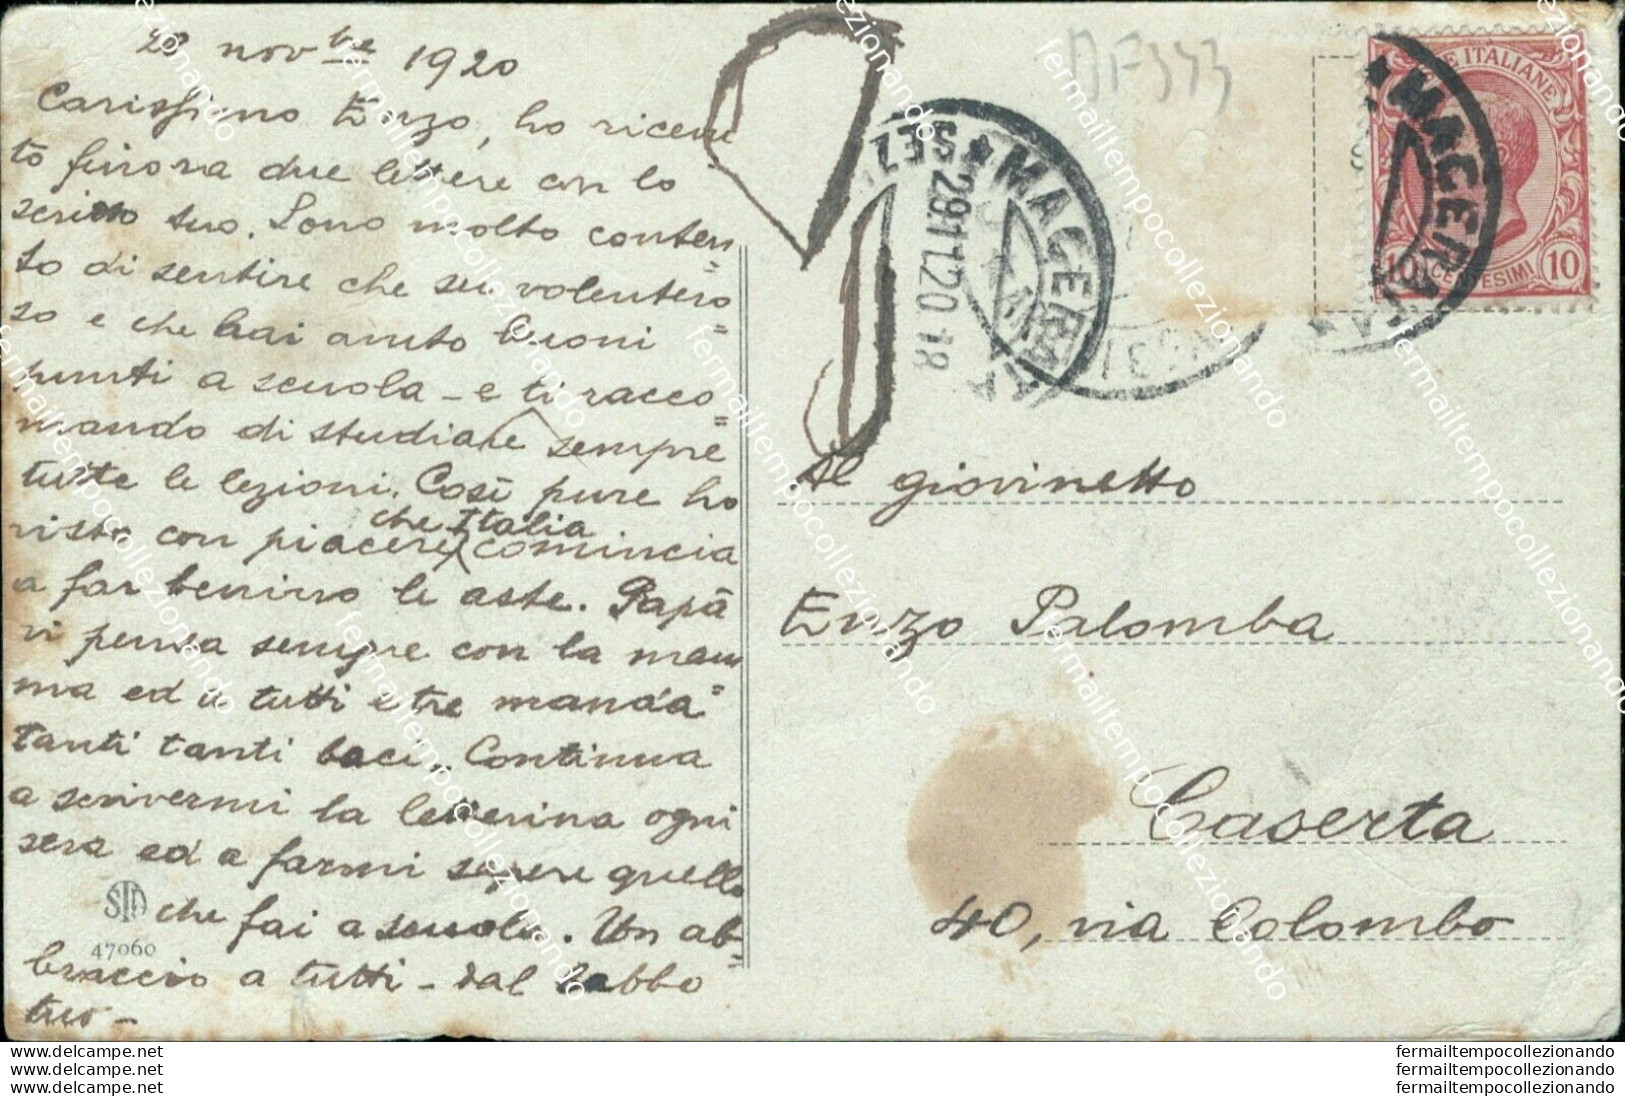 28 novbre 1920
Carissimo Enzo, ho ricevu
to finora due lettere con lo
scritto tuo. Sono molto conten=
to di sentire che sei volentero=
so e che hai avuto buoni
punti a scuola - e ti racco=
mando di studiare sempre
tutte le lezioni. Così pure ho
visto con piacere che Italia comincia
a far benino le aste. Papà
vi pensa sempre con la mam=
ma ed a tutti e tre manda
tanti tanti baci. Continua
a scrivermi la letterina ogni
sera ed a farmi sapere quello
che fai a scuola. Un ab=
braccio a tutti - dal babbo
tuo -
STA
47060
AF343
MACERATA
29.11.20.18
MACERATA
POSTE ITALIANE
10 CENTESIMI 10
Al giovinetto
Enzo Palomba
Caserta
40, via Colombo
fermailtempocollezionando
www.delcampe.net fermailtempocollezionando
www.delcampe.net fermailtempocollezionando
www.delcampe.net fermailtempocollezionando